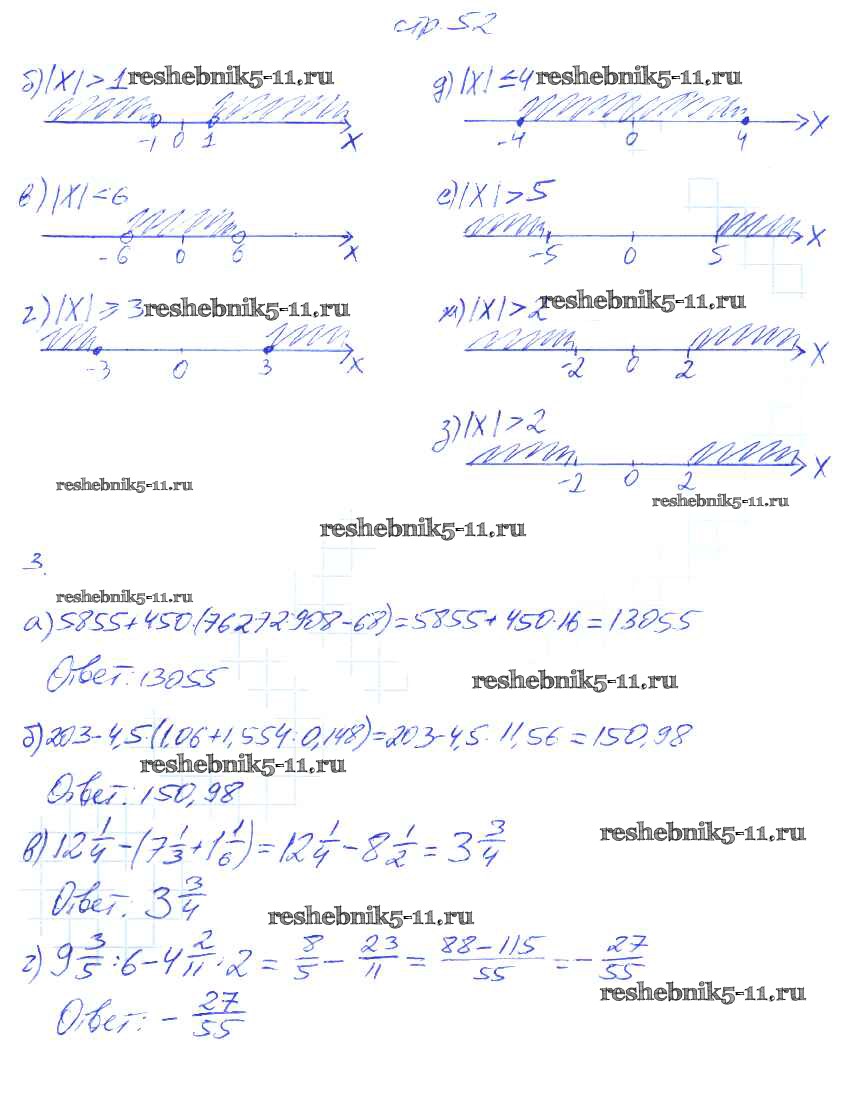 стр. 52
б) |x| > 1 reshebnik5-11.ru
-1 0 1 x
в) |x| < 6
-6 0 6 x
г) |x| ⩾ 3 reshebnik5-11.ru
-3 0 3 x
д) |x| ≤ 4 reshebnik5-11.ru
-4 0 4 x
е) |x| > 5
-5 0 5 x
reshebnik5-11.ru
ж) |x| > 2
-2 0 2 x
з) |x| > 2
-2 0 2 x
reshebnik5-11.ru
reshebnik5-11.ru
reshebnik5-11.ru
3.
reshebnik5-11.ru
а) 5855+450·(76272:908-68)=5855+450·16=13055
Ответ: 13055
reshebnik5-11.ru
б) 203-4,5·(1,06+1,554:0,148)=203-4,5·11,56=150,98
reshebnik5-11.ru
Ответ: 150,98
в) 12 1/4 - (7 1/3 + 1 1/6) = 12 1/4 - 8 1/2 = 3 3/4
reshebnik5-11.ru
Ответ: 3 3/4
reshebnik5-11.ru
г) 9 3/5 : 6 - 4 2/11 : 2 = 8/5 - 23/11 = 88-115/55 = - 27/55
reshebnik5-11.ru
Ответ: - 27/55